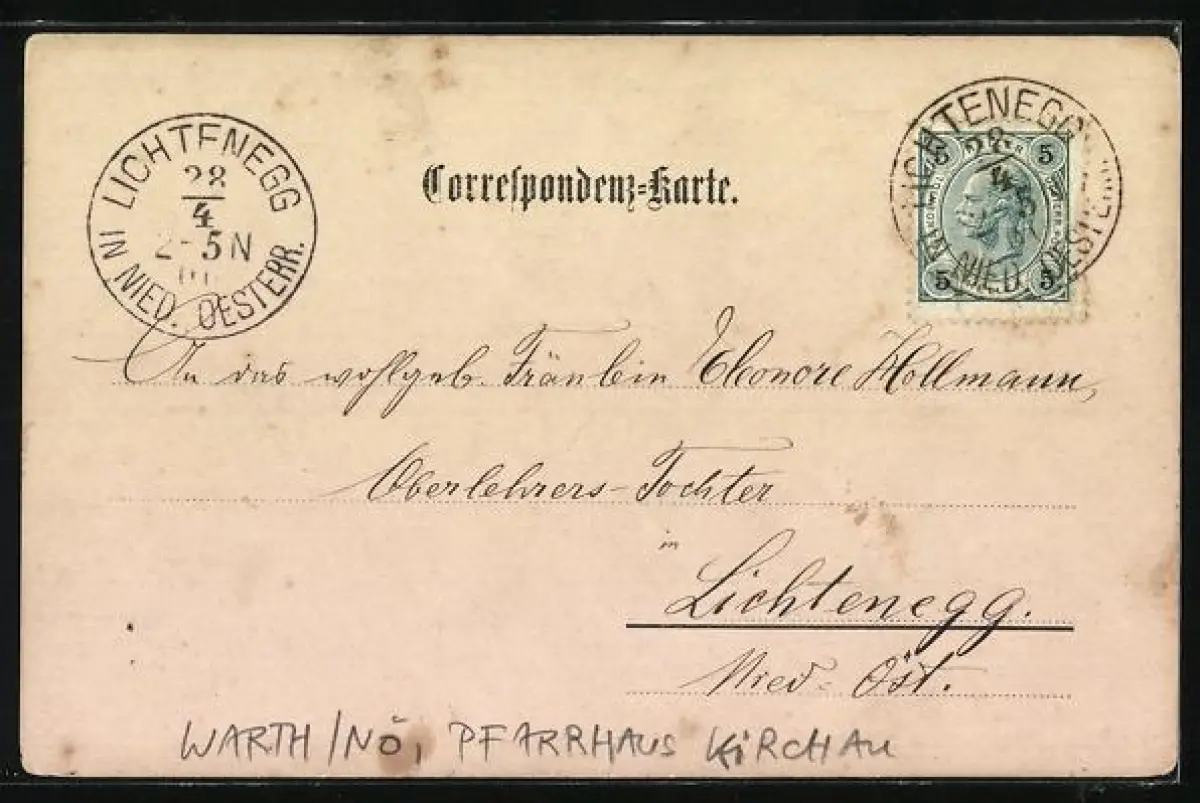 LICHTENEGG
28
4
2-5 N
01
IN NIED. OESTERR.
Correspondenz=Karte.
LICHTENEGG
28
4
IN NIED. OESTERR.
5 5
5 5
An das wohlgeb. Fräulein Eleonore Hollmann,
Oberlehrers-Tochter
in
Lichtenegg.
Nied-Öst.
WARTH/NÖ, PFARRHAUS KIRCHAU